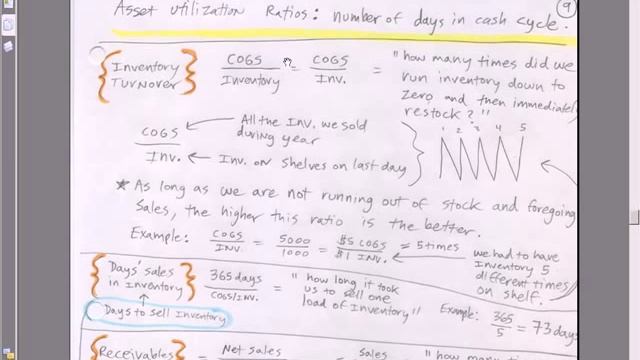 Asset Utilization Ratios: number of days in cash cycle.
9
Inventory Turnover
COGS / Inventory = COGS / Inv. = "how many times did we run inventory down to zero and then immediately restock?"
COGS / Inv.
All the Inv. we sold during year
Inv. on shelves on last day
1 2 3 4 5
* As long as we are not running out of stock and foregoing
Sales, the higher this ratio is the better.
Example: COGS / INV. = 5000 / 1000 = $5 COGS / $1 INV. = 5 times
we had to have Inventory 5 different times on shelf.
Days' sales in inventory
365 days / COGS/INV. = "how long it took us to sell one load of Inventory"
Example: 365 / 5 = 73 days
Days to sell Inventory
Receivables
= Net sales = Sales = "how many times